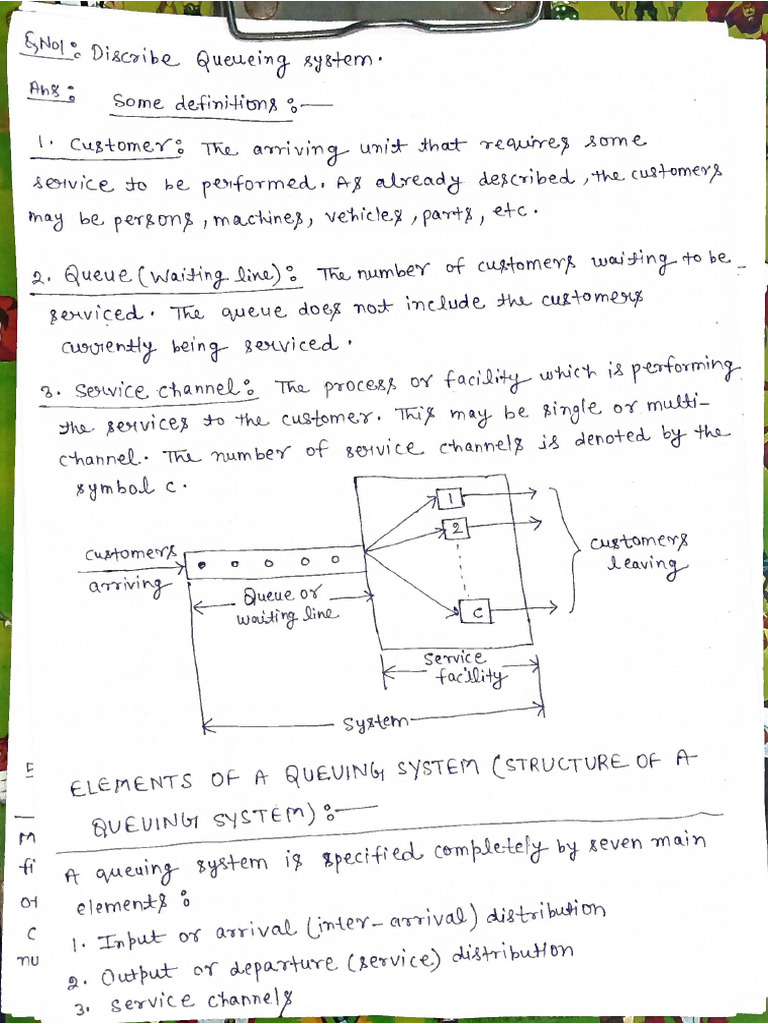 Q,No1: Discribe Queueing system.
Ans: Some definitions:—
1. Customer: The arriving unit that requires some
service to be performed. As already described, the customers
may be persons, machines, vehicles, parts, etc.
2. Queue (Waiting line): The number of customers waiting to be
serviced. The queue does not include the customers
currently being serviced.
3. Service channel: The process or facility which is performing
the services to the customer. This may be single or multi-
channel. The number of service channels is denoted by the
symbol c.
1
2
c
customers
arriving
Queue or
waiting line
customers
leaving
service
facility
system
ELEMENTS OF A QUEUING SYSTEM (STRUCTURE OF A
QUEUING SYSTEM):—
A queuing system is specified completely by seven main
elements:
1. Input or arrival (inter-arrival) distribution
2. Output or departure (service) distribution
3. Service channels
E
M
fi
of
C
nu